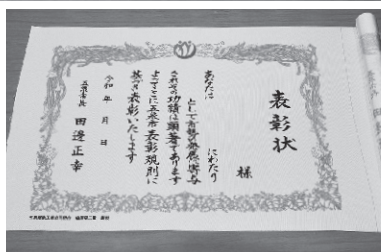 表彰状
様
あなたは　　にわたり
として市勢の発展に寄与
されその功績は顕著であります
よってここに五泉市表彰規則に
基づき表彰いたします
令和　年　月　日
五泉市長　田邊正幸